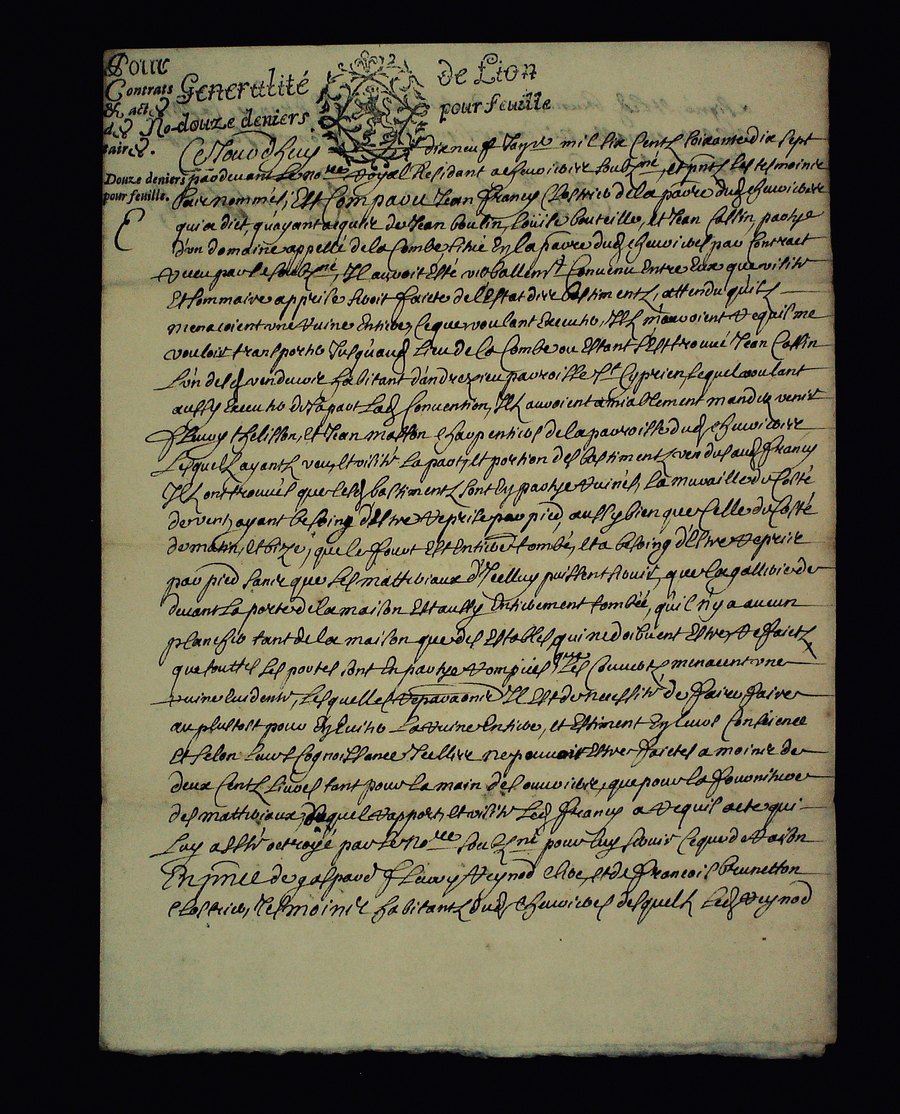 Pour
Contrats
& actes
des No-
taires.
Douze deniers
pour feuille.
Generalité de Lion
douze deniers pour feuille
Cejourdhuy dixneuf mil six centz soixante dix sept
pardevant le no.re Royal Residant a chevrieres soubz.né, et pntz les tesmoins
bas nommés, Est Comparu Jean Francy de la par.re dud chevrieres
qui a dict, qu'ayant acquis de Jean boulin, Louise bouteille, et Jean Cossin, partye
d'un domaine appellé de la Combe, sitüé En la par.re dud chevrieres par Contract
receu par le soubz.né, Il auroit Esté verballem.t Convenu Entre Eux que visitte
Et sommaire apprise seroit faicte de l'Estat des bastimentz, attendu qu'ilz
menacoient une ruine Entiere, Ce que voulant Executer, Ilz m'auroient requis me
vouloir transporter Jusqu'aud lieu de la Combe ou Estant s'Est trouué Jean Cossin
L'un desd vendeurs habitant d'andrezieu parroisse S.t Cyprien, Lequel voulant
aussy Executer de sa part lad Convention, Ilz auroient amiablement mandé venir
Fleury thelisson, et Jean masson charpentiers de la parroisse dud chevrieres
Lesquelz ayantz veu, et visité la part, et portion des bastimentz vendus aud Francy
Ilz ont trouvés que lesd bastimentz sont En partye ruinés, la muraille du Costé
de vent, ayant besoing d'Estre reprise par pied, aussy bien que Celle du Costé
de matin, et bize, que le four Est Entierement tombé, et a besoing d'Estre reprise
par pied sans que les matteriaux d'Icelluy puissent servir, que la gallerie de
devant la porte de la maison Est aussy Entierement tombée, qu'il n'y a aucun
plancher tant de la maison que des Estables qui ne doibuent Estre refaictz
que touttes les portes sont En partye rompües, que Les Couvertz menacent une
ruine Evidente, Lesquelles reparaons Il Est de necessité de faire faire
au plustost pour En Eviter la ruine Entiere, et Estiment En leurs Consience
Et selon leurs Cognoissance ne pouvoir Estre faictes a moins de
deux Centz livres tant pour la main des ouvriers, que pour la fourniture
des matteriaux, duquel rapport, et visitte Led Francy a requis acte qui
Luy a Esté octroyé par le No.re soubz.né pour luy servir Ce que de raison
En p.nce de gaspard Fleury Reynod, et de Francois brunetton
tesmoins habitantz dud chevrieres desquelz Led Reynod